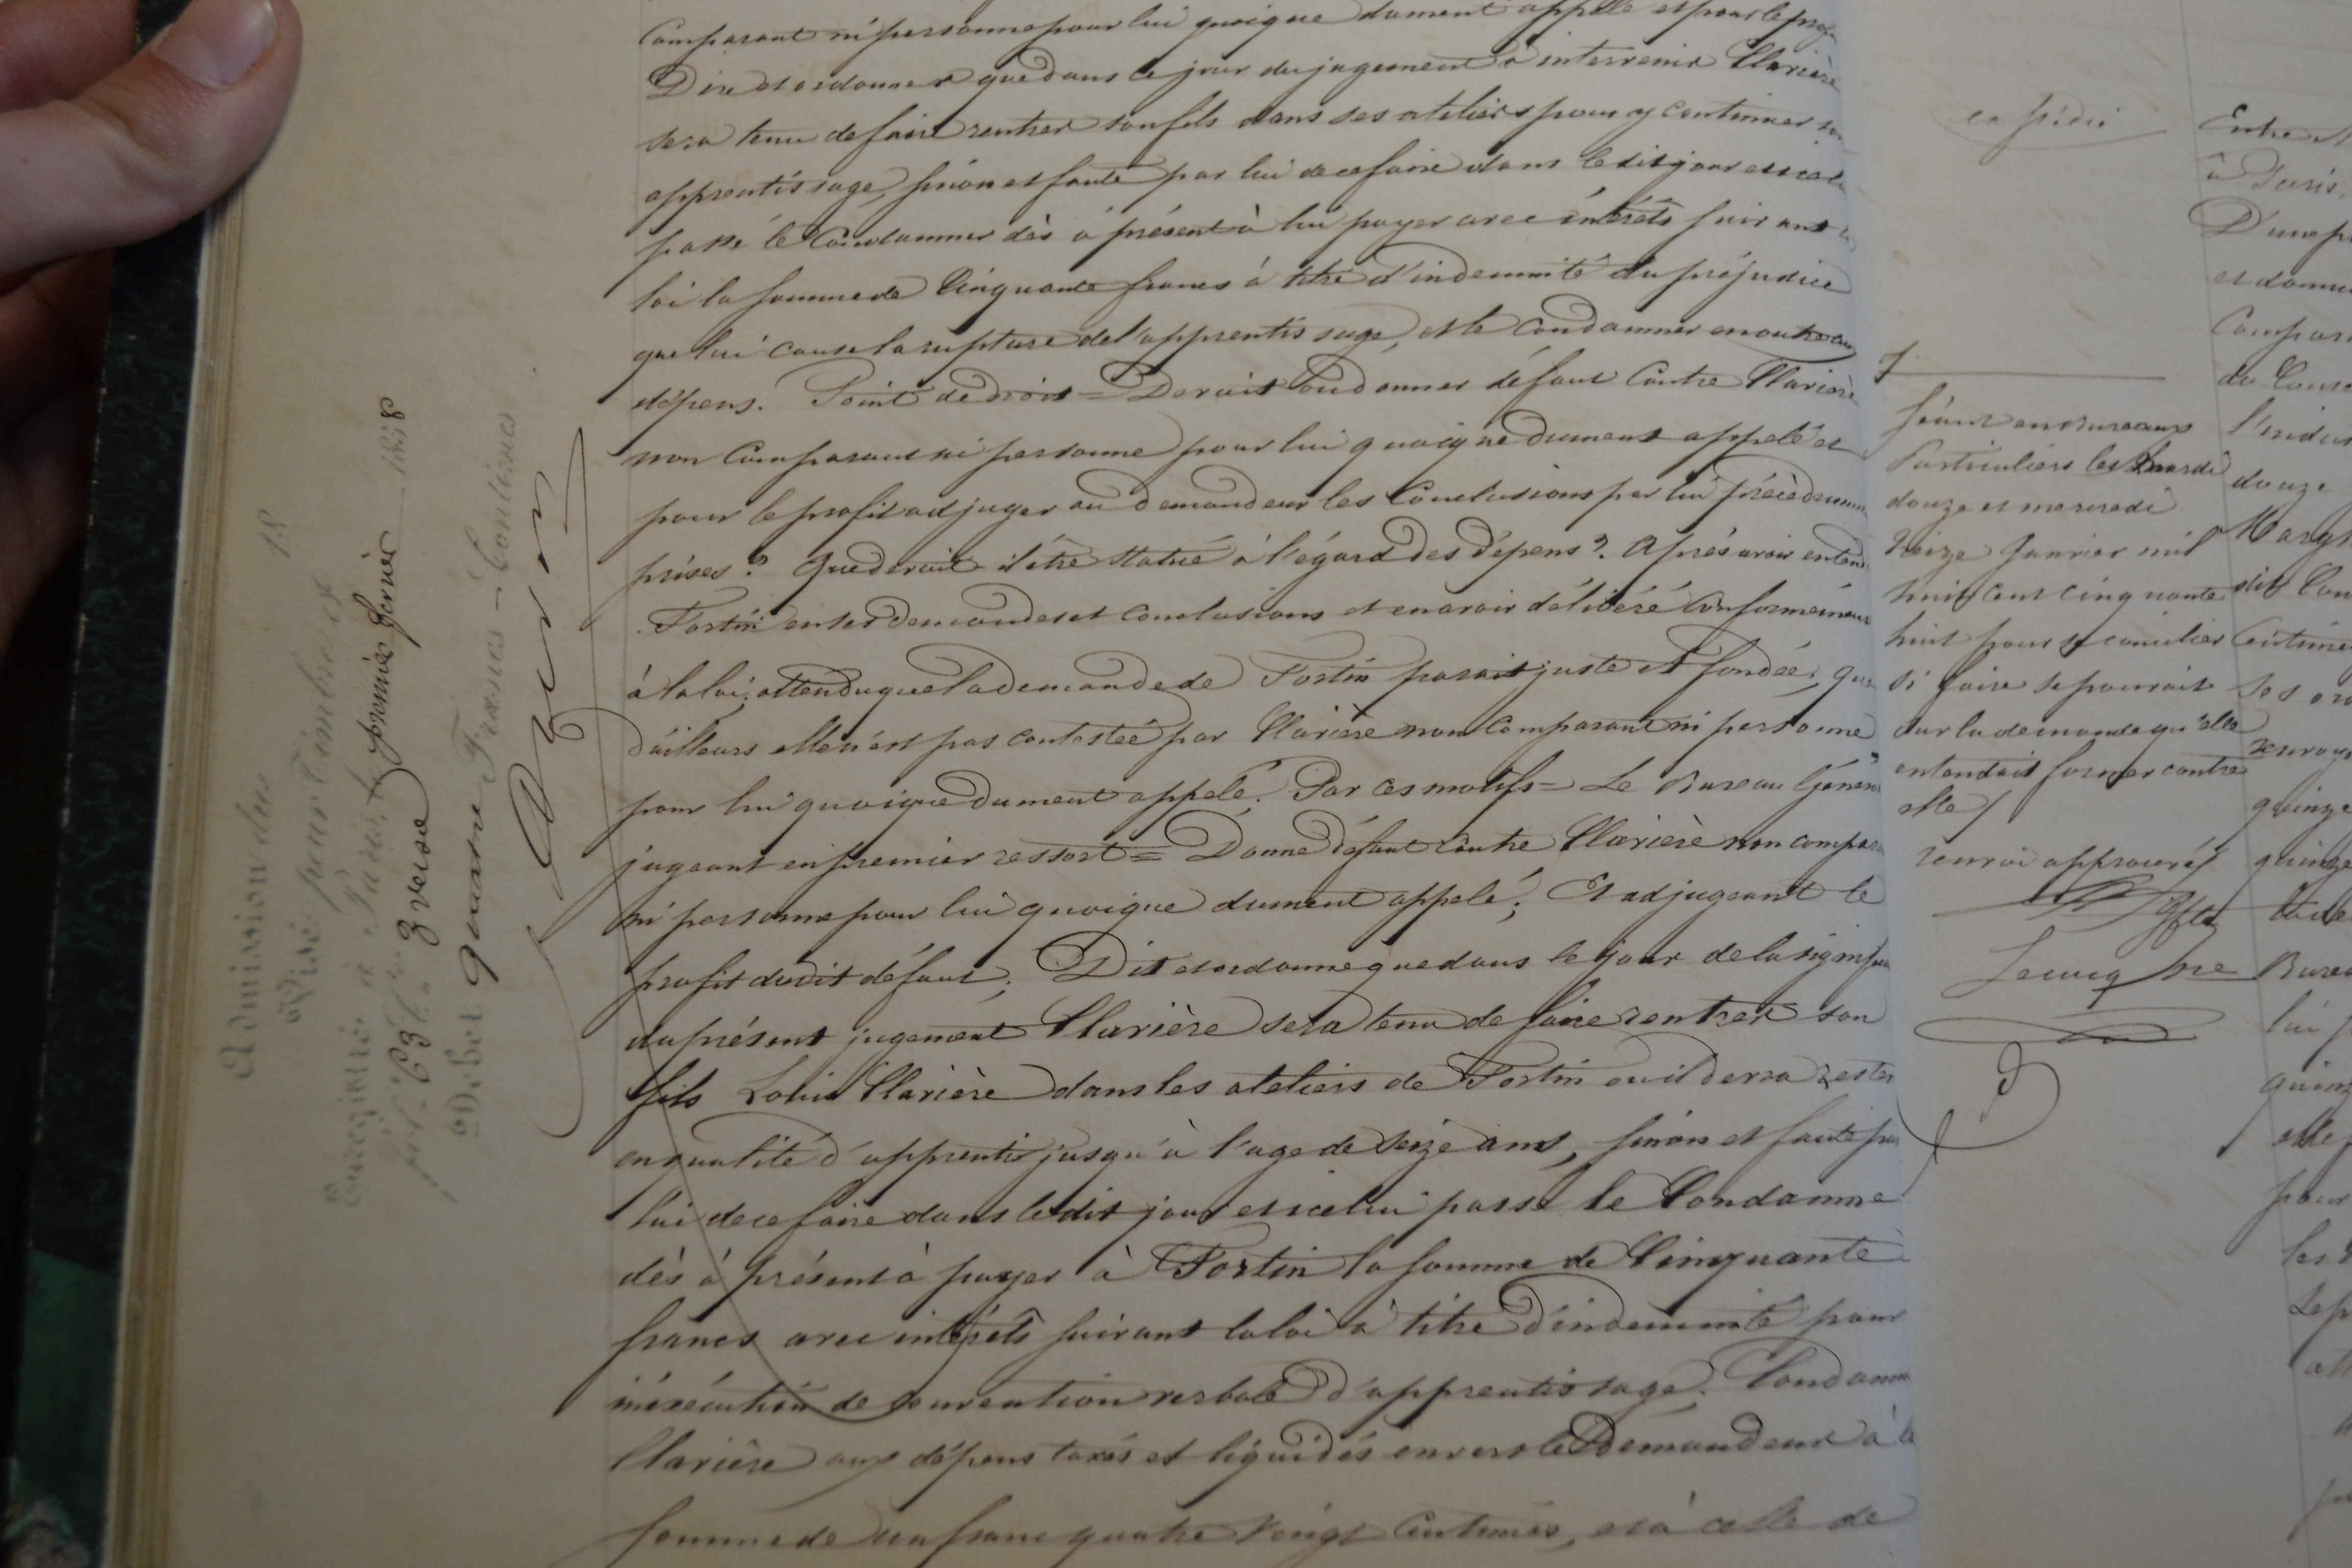 Comparant ni personne pour lui quoique dument appelé et pour le profit
Dire et ordonner que dans le jour du jugement à intervenir Clarière
sera tenu de faire rentrer son fils dans ses ateliers pour y continuer son
apprentissage, sinon et faute par lui de ce faire dans ledit jour et icelui
passé le Condamner dès à présent à lui payer avec intérêts suivant la
loi la somme de Cinquante francs à titre d'indemnité du préjudice
que lui cause la rupture de l'apprentissage, et le Condamner en outre aux
dépens. Point de droit = Devait-on donner défaut Contre Clarière
non Comparant ni personne pour lui quoique dument appelé et
pour le profit adjuger au demandeur les Conclusions par lui précédemment
prises ? Que devait-il être statué à l'égard des dépens ? Après avoir entendu
Fortin en ses demandes et conclusions et en avoir délibéré Conformément
à la loi; attendu que la demande de Fortin parait juste et fondée; que
d'ailleurs elle n'est pas contestée par Clarière non Comparant ni personne
pour lui quoique dument appelé. Par ces motifs = Le Bureau Général
jugeant en premier ressort = Donne défaut Contre Clarière non comparant
ni personne pour lui quoique dument appelé; Et adjugeant le
profit dudit défaut; Dit et ordonne que dans le jour de la signif
du présent jugement Clarière sera tenu de faire rentrer son
fils Louis Clarière dans les ateliers de Fortin où il devra rester
en qualité d'apprenti jusqu'à l'age de seize ans, sinon et faute par
lui de ce faire dans ledit jour et icelui passé le Condamne
dès à présent à payer à Fortin la somme de Cinquante
francs avec intérêts suivant la loi à titre d'indemnité pour
inéxécution de convention verbale d'apprentissage. Condamne
Clarière aux dépens taxés et liquidés envers le Demandeur à la
somme de un franc quatre vingt Centimes, et à celle de
Admission du 18
Visé pour timbre et
Enregistré à Paris, le premier février 1858
fol. 63 3 verso
Débet quatre Francs – Centimes
expédié
séant en bureaux
Particuliers les Mardi
douze et mercredi
treize Janvier mil
huit Cent cinquante
huit pour se concilier
si faire se pouvait
sur la demande qu'elle
entendait former contre
elle /
renvoi approuvé /
Lecucq
Entre
à Paris,
D'une p
et donn
Compar
du Cons
l'indem
douze
dit Con
Centimes
Ses
renvoy
quinze
quinze
Bureau
lui
quinz
elle
pour
les